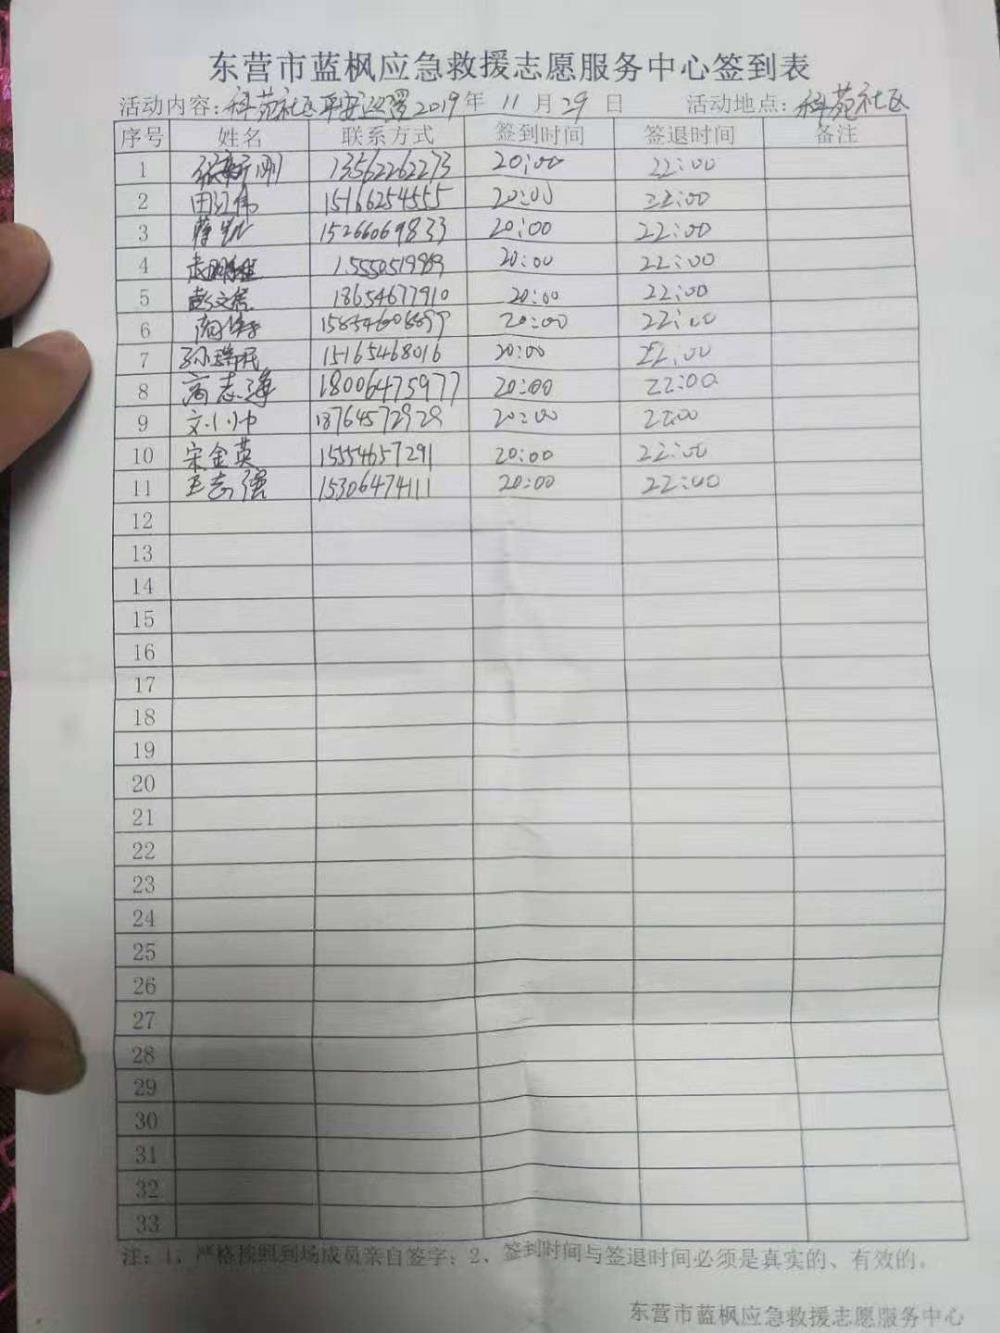 东营市蓝枫应急救援志愿服务中心签到表
活动内容:科苑社区平安巡逻 2019年 11月 29日 活动地点:科苑社区
序号 姓名 联系方式 签到时间 签退时间 备注
1 13562262273 20:00 22:00
2 田江伟 15166254555 20:00 22:00
3 15266069833 20:00 22:00
4 20:00 22:00
5 彭文信 18654677910 20:00 22:00
6 20:00 22:00
7 孙瑞民 15165468016 20:00 22:00
8 高志海 18006475977 20:00 22:00
9 18764572928 20:00 22:00
10 宋金英 15554657291 20:00 22:00
11 王志强 15306474111 20:00 22:00
12
13
14
15
16
17
18
19
20
21
22
23
24
25
26
27
28
29
30
31
32
33
注:1、严格按照到场成员亲自签字;2、签到时间与签退时间必须是真实的、有效的。
东营市蓝枫应急救援志愿服务中心